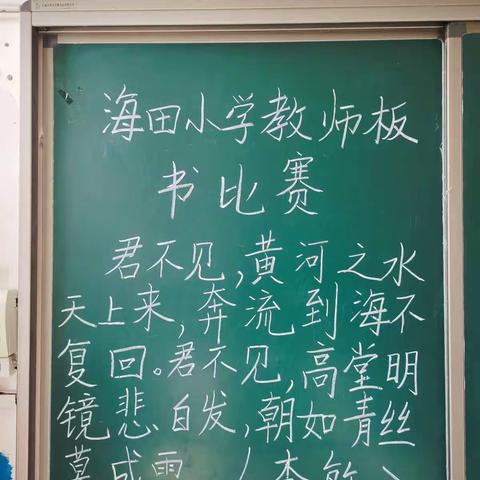 海田小学教师板
书比赛
君不见,黄河之水
天上来,奔流到海不
复回。君不见,高堂明
镜悲白发,朝如青丝
暮成雪